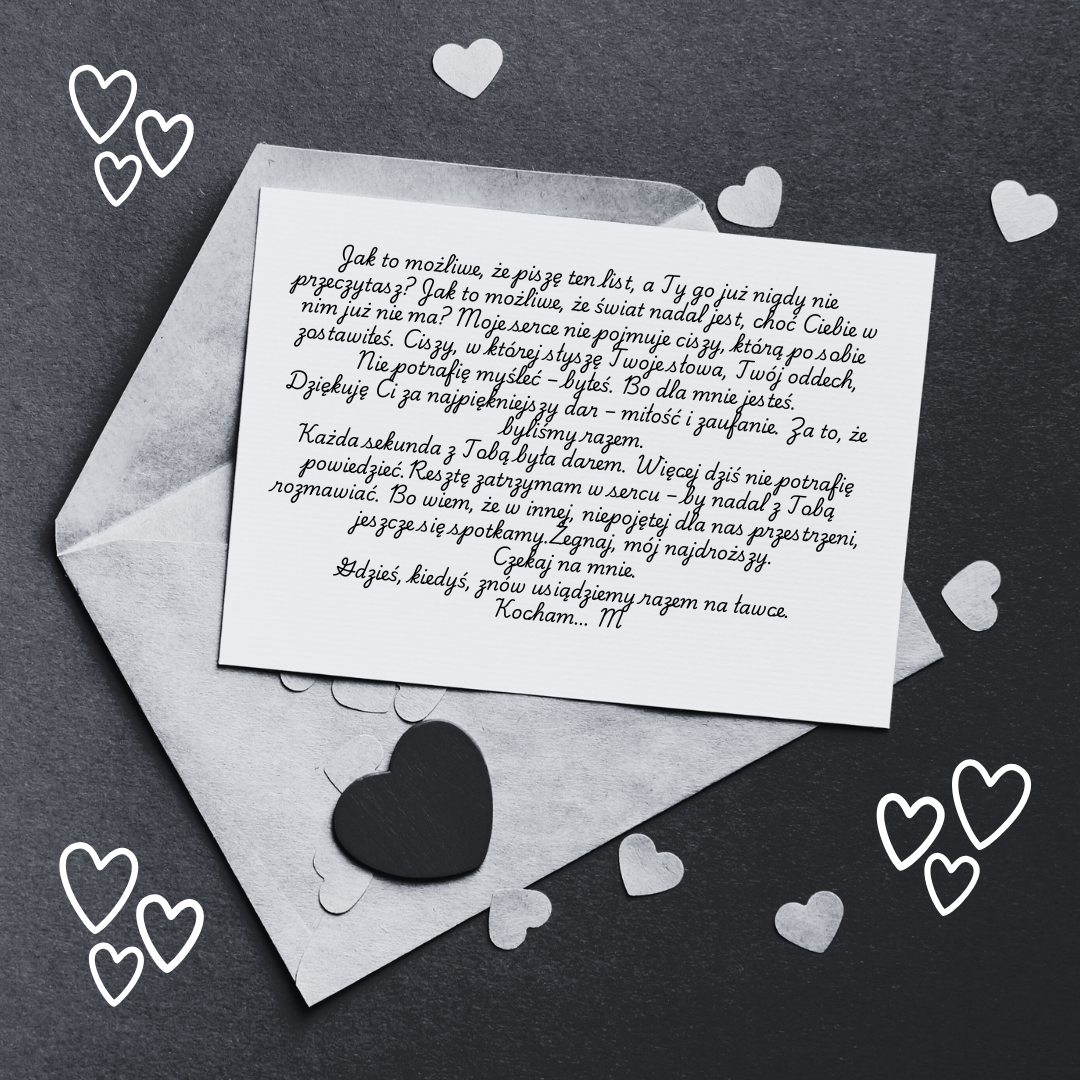 Jak to możliwe, że piszę ten list, a Ty go już nigdy nie
przeczytasz? Jak to możliwe, że świat nadal jest, choć Ciebie w
nim już nie ma? Moje serce nie pojmuje ciszy, którą po sobie
zostawiłeś. Ciszy, w której słyszę Twoje słowa, Twój oddech,
Nie potrafię myśleć – byłeś. Bo dla mnie jesteś.
Dziękuję Ci za najpiękniejszy dar – miłość i zaufanie. Za to, że
byliśmy razem.
Każda sekunda z Tobą była darem. Więcej dziś nie potrafię
powiedzieć. Resztę zatrzymam w sercu – by nadal z Tobą
rozmawiać. Bo wiem, że w innej, niepojętej dla nas przestrzeni,
jeszcze się spotkamy. Żegnaj, mój najdroższy.
Czekaj na mnie.
Gdzieś, kiedyś, znów usiądziemy razem na ławce.
Kocham... M